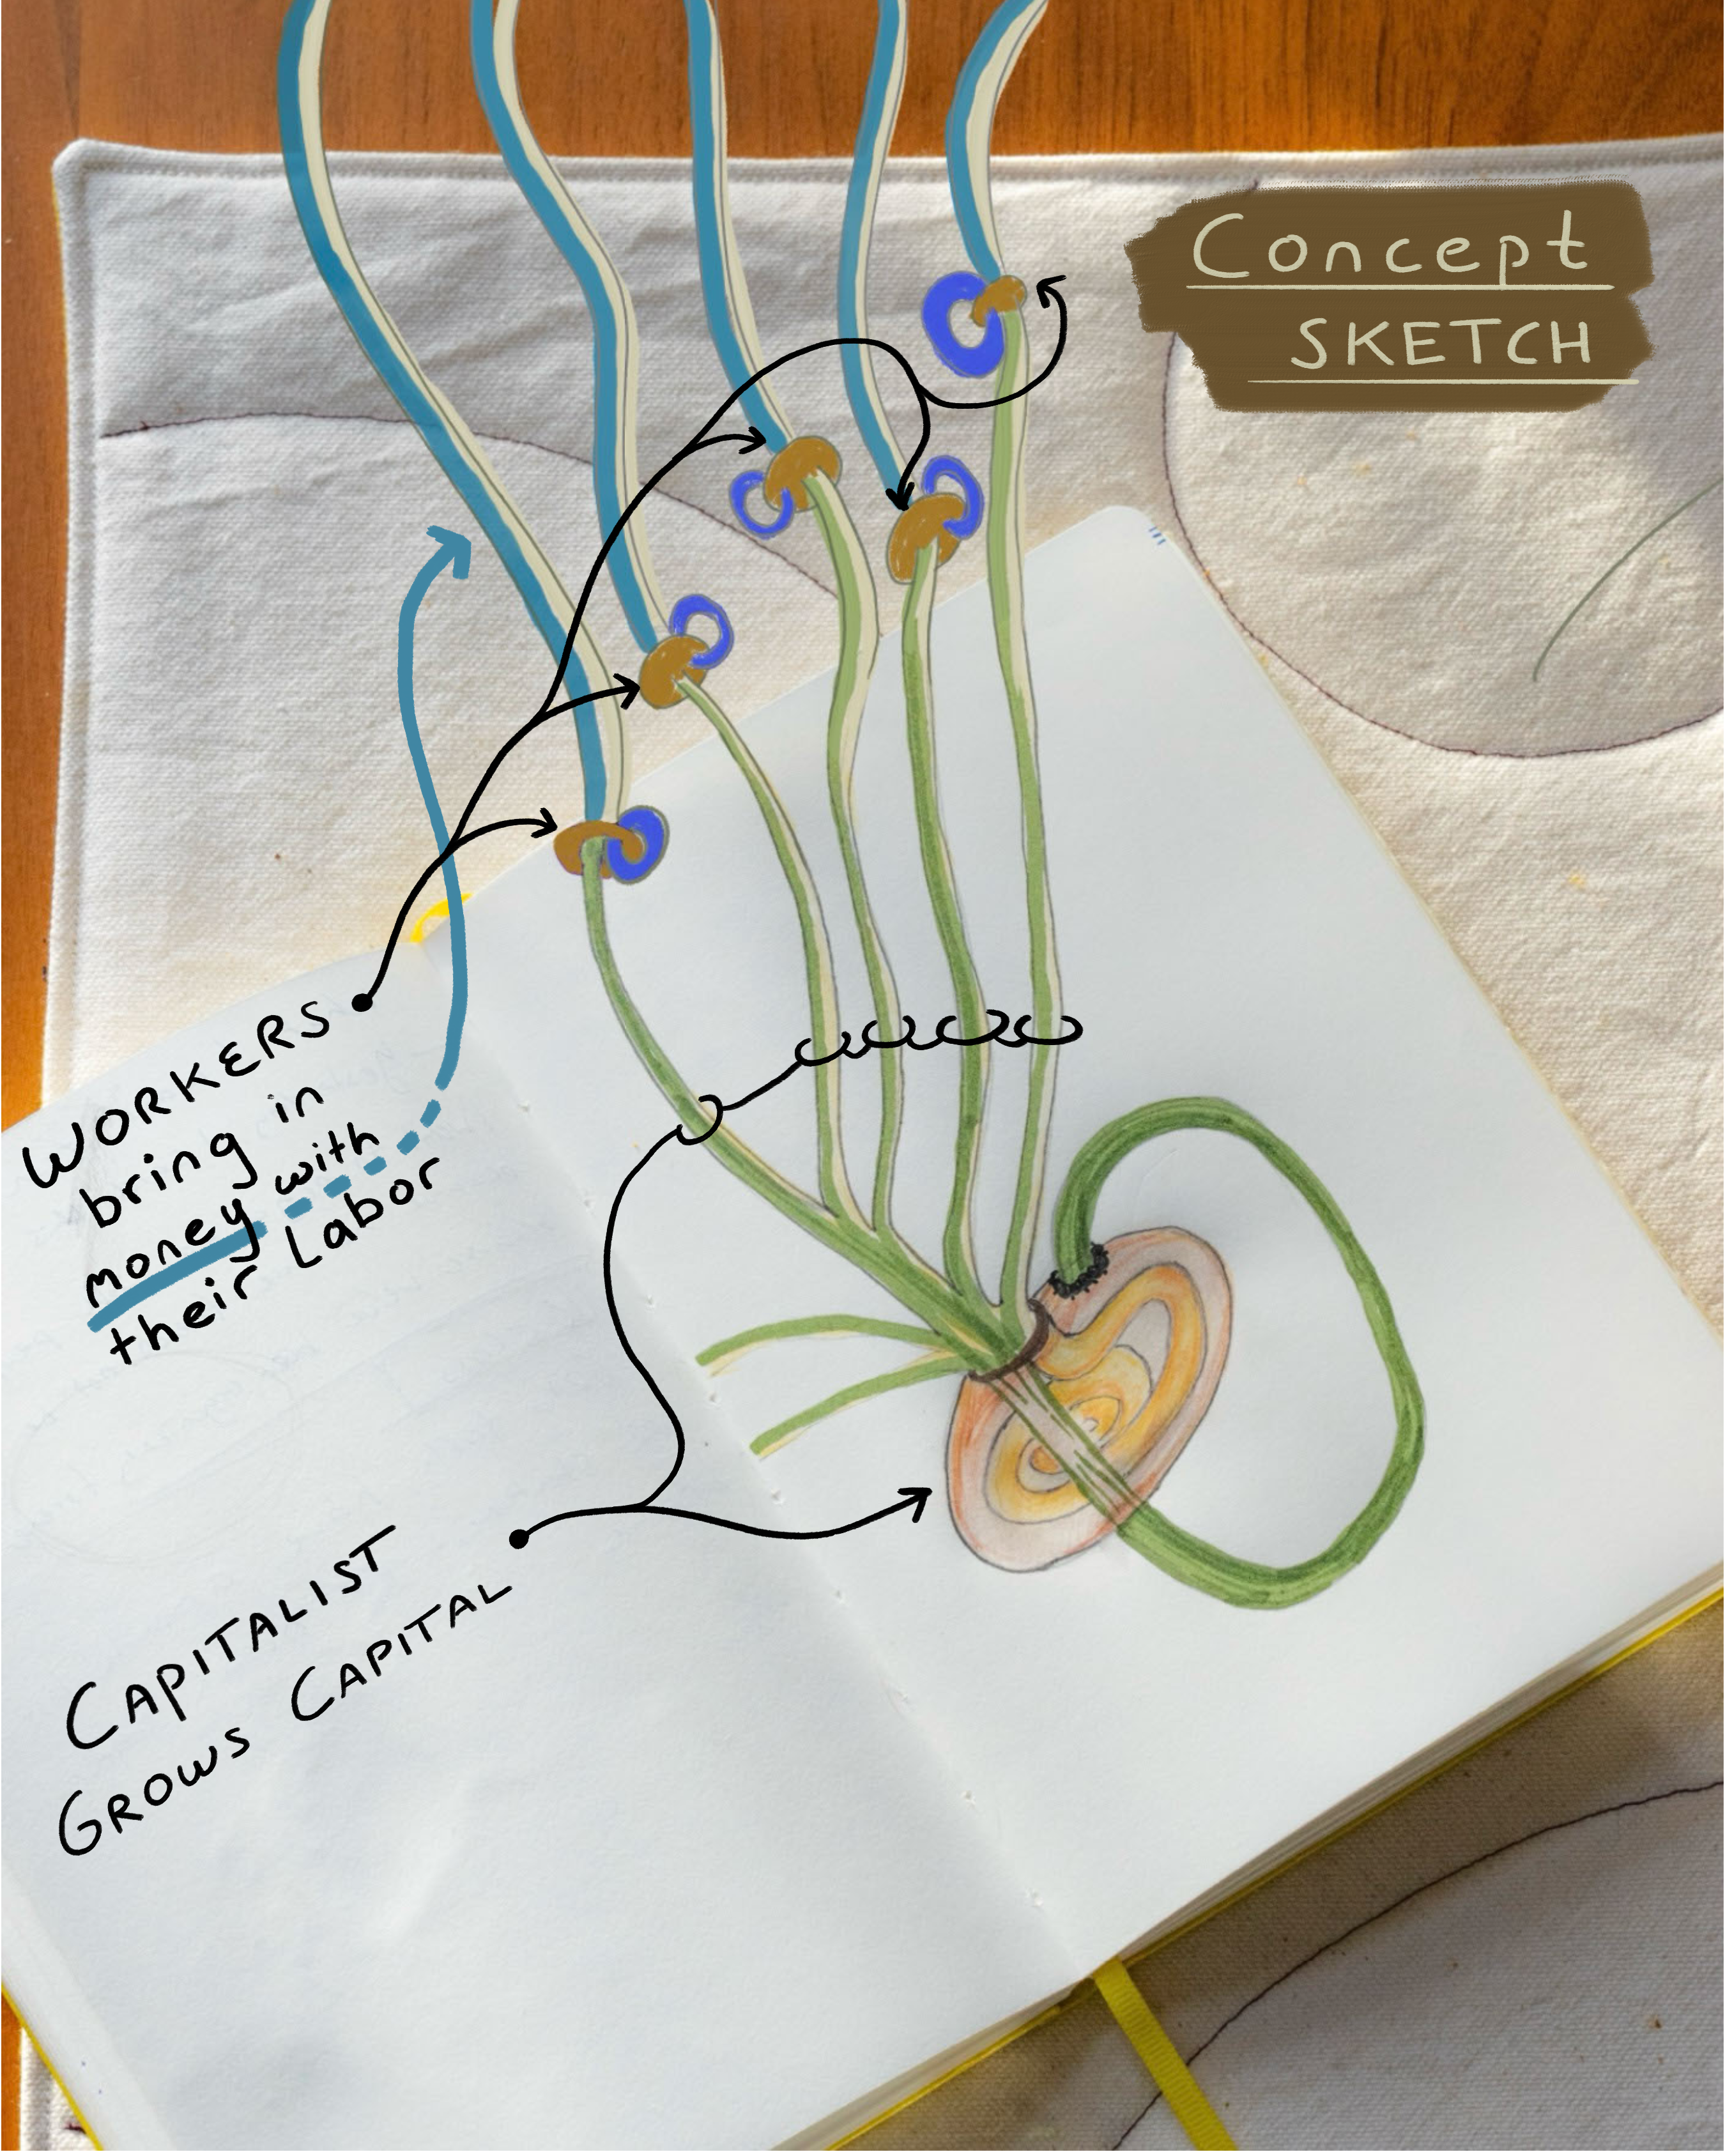 Concept
SKETCH
WORKERS
bring in
money with
their Labor
CAPITALIST
GROWS CAPITAL